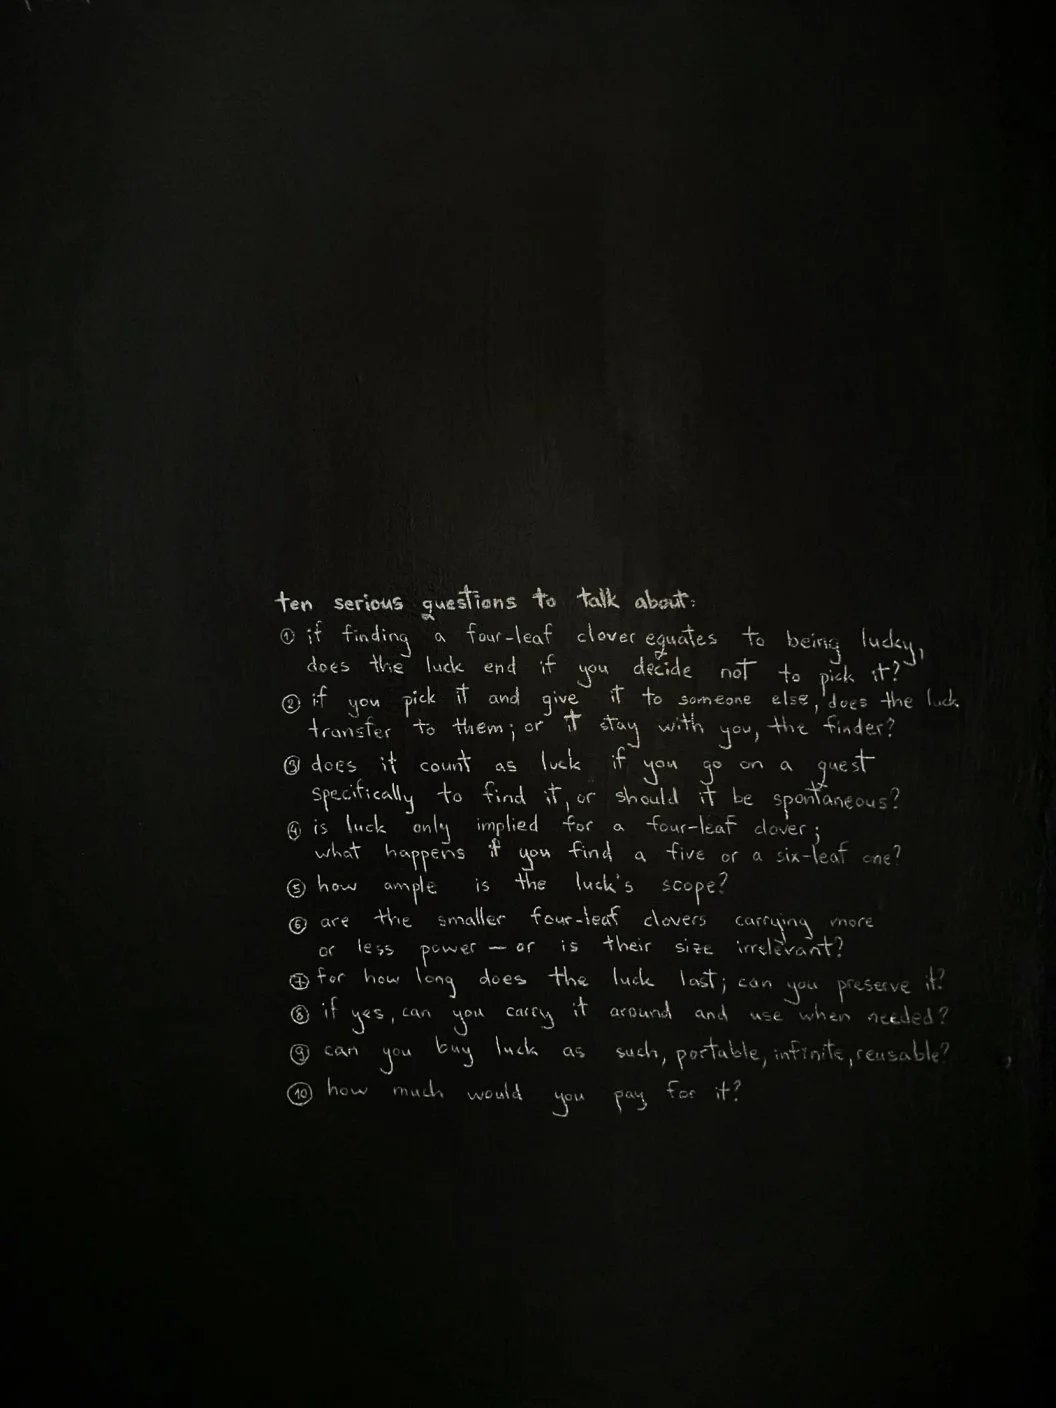 ten serious questions to talk about:
① if finding a four-leaf clover equates to being lucky,
does the luck end if you decide not to pick it?
② if you pick it and give it to someone else, does the luck
transfer to them; or it stay with you, the finder?
③ does it count as luck if you go on a quest
specifically to find it, or should it be spontaneous?
④ is luck only implied for a four-leaf clover;
what happens if you find a five or a six-leaf one?
⑤ how ample is the luck's scope?
⑥ are the smaller four-leaf clovers carrying more
or less power — or is their size irrelevant?
⑦ for how long does the luck last; can you preserve it?
⑧ if yes, can you carry it around and use when needed?
⑨ can you buy luck as such, portable, infinite, reusable?
⑩ how much would you pay for it?